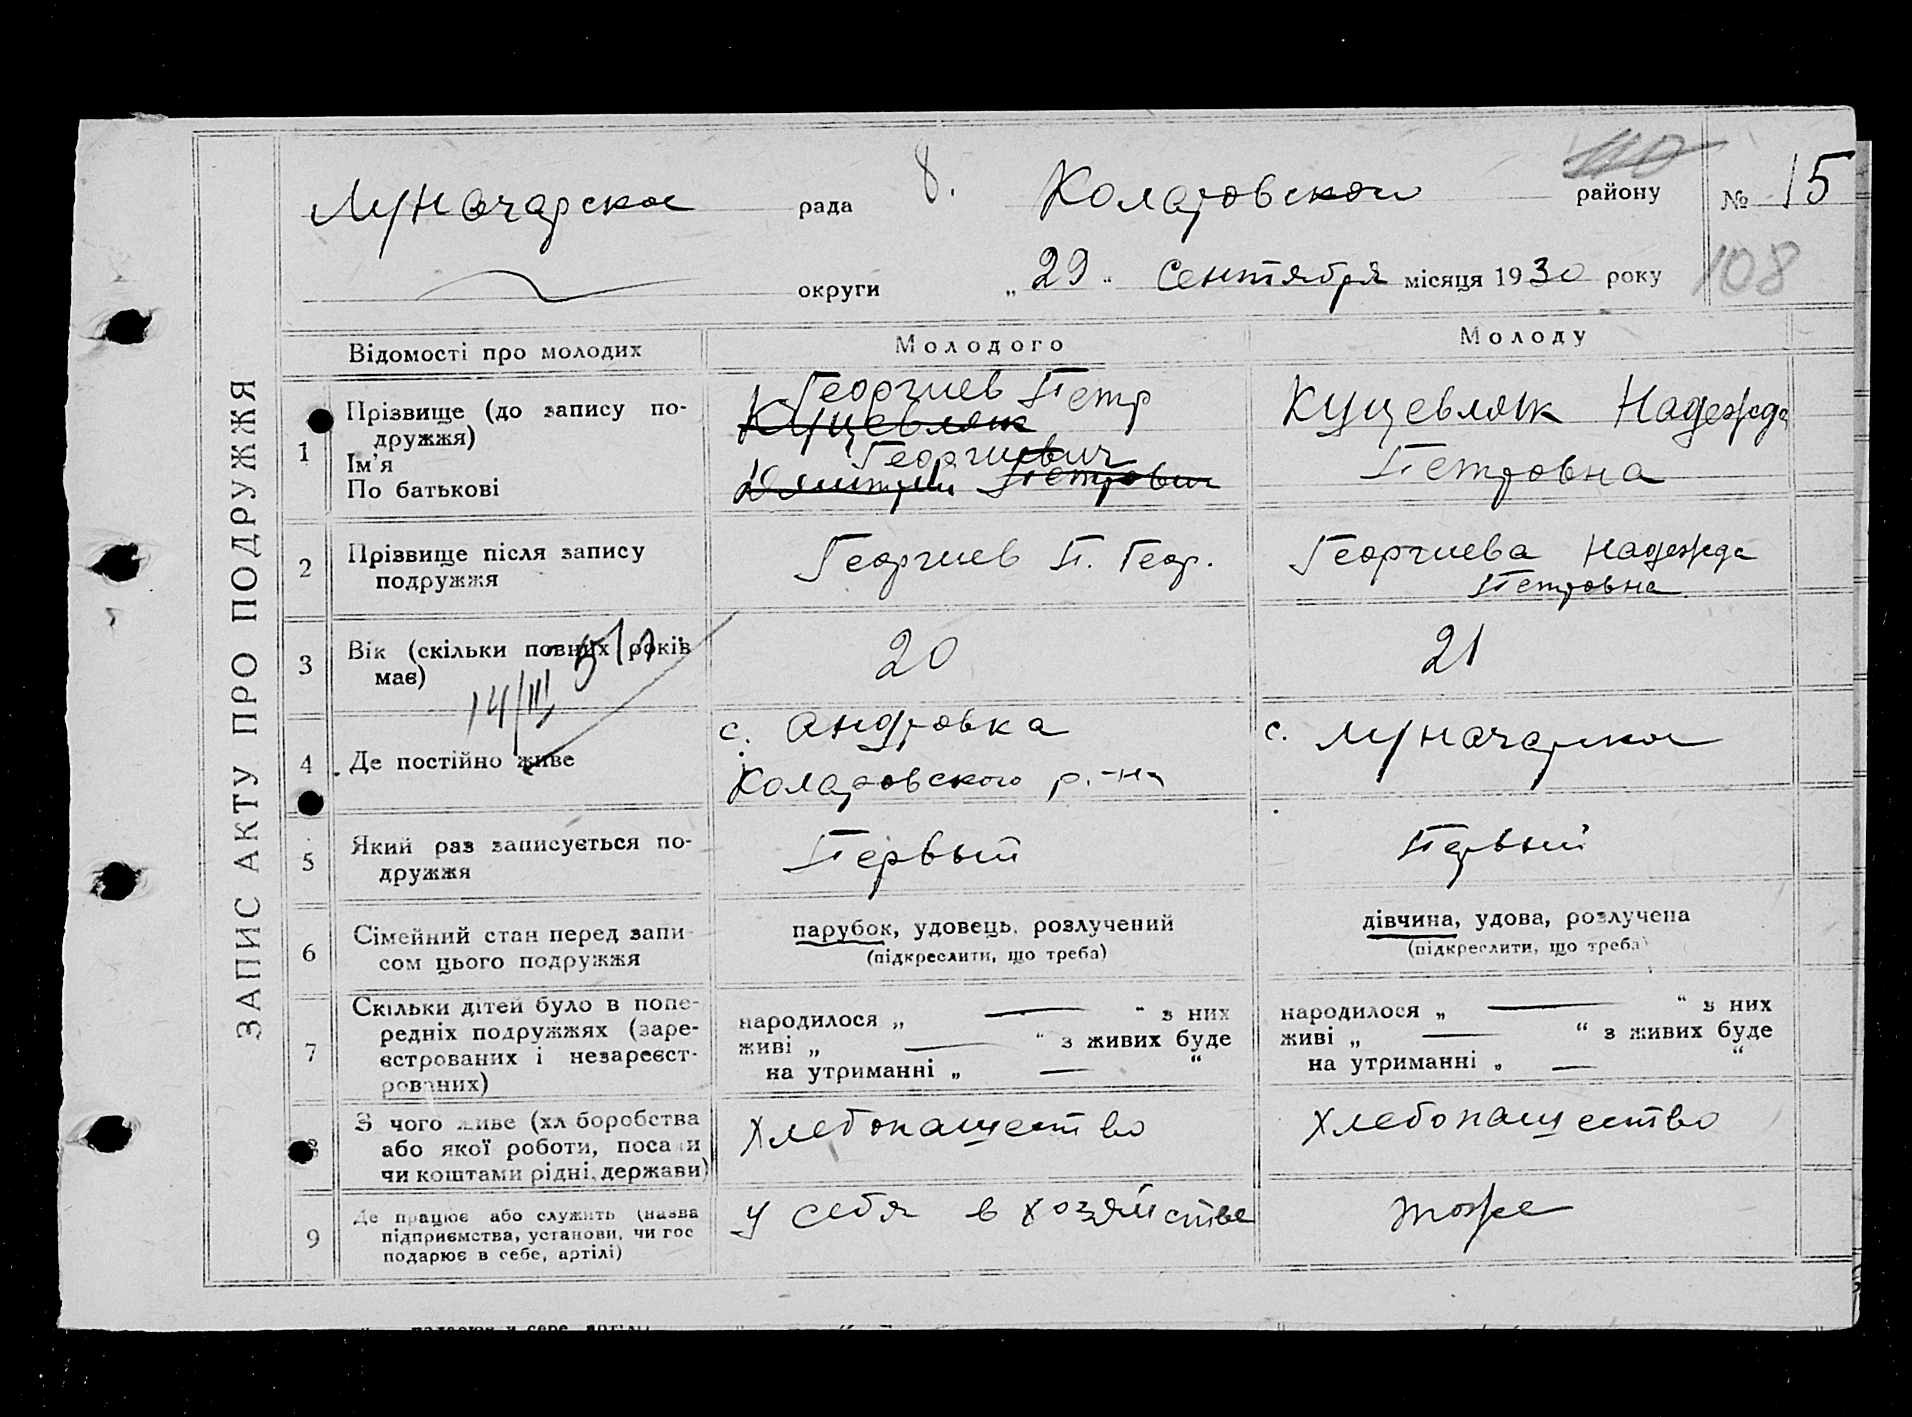 ЗАПИС АКТУ ПРО ПОДРУЖЖЯ
Луначарское рада 8. Коларовского району № 15
округи „ 29 “ Сентября місяця 1930 року 108
Відомості про молодих Молодого Молоду
1 Прізвище (до запису по-
дружжя)
Ім'я
По батькові
Георгиев Петр
Куцевляк
Георгиевич
Дмитрий Петрович
Куцевляк Надежда
Петровна
2 Прізвище після запису
подружжя
Георгиев П. Геор.
Георгиева Надежда
Петровна
3 Вік (скільки повних років
має)
20
21
14/III
4 Де постійно живе
с. Андровка
Коларовского р-на
с. Луначарское
5 Який раз записується по-
дружжя
Первый
Первый
6 Сімейний стан перед запи-
сом цього подружжя
парубок, удовець, розлучений
(підкреслити, що треба)
дівчина, удова, розлучена
(підкреслити, що треба)
7 Скільки дітей було в попе-
редніх подружжях (заре-
єстрованих і незареєст-
рованих)
народилося „ — “ з них
живі „ — “ з живих буде
на утриманні „ — “
народилося „ — “ з них
живі „ — “ з живих буде
на утриманні „ — “
8 З чого живе (хліборобства
або якої роботи, посади
чи коштами рідні, держави)
Хлебопашество
Хлебопашество
9 Де працює або служить (назва
підприємства, установи, чи гос
подарює в себе, артілі)
У себя в хозяйстве
тоже